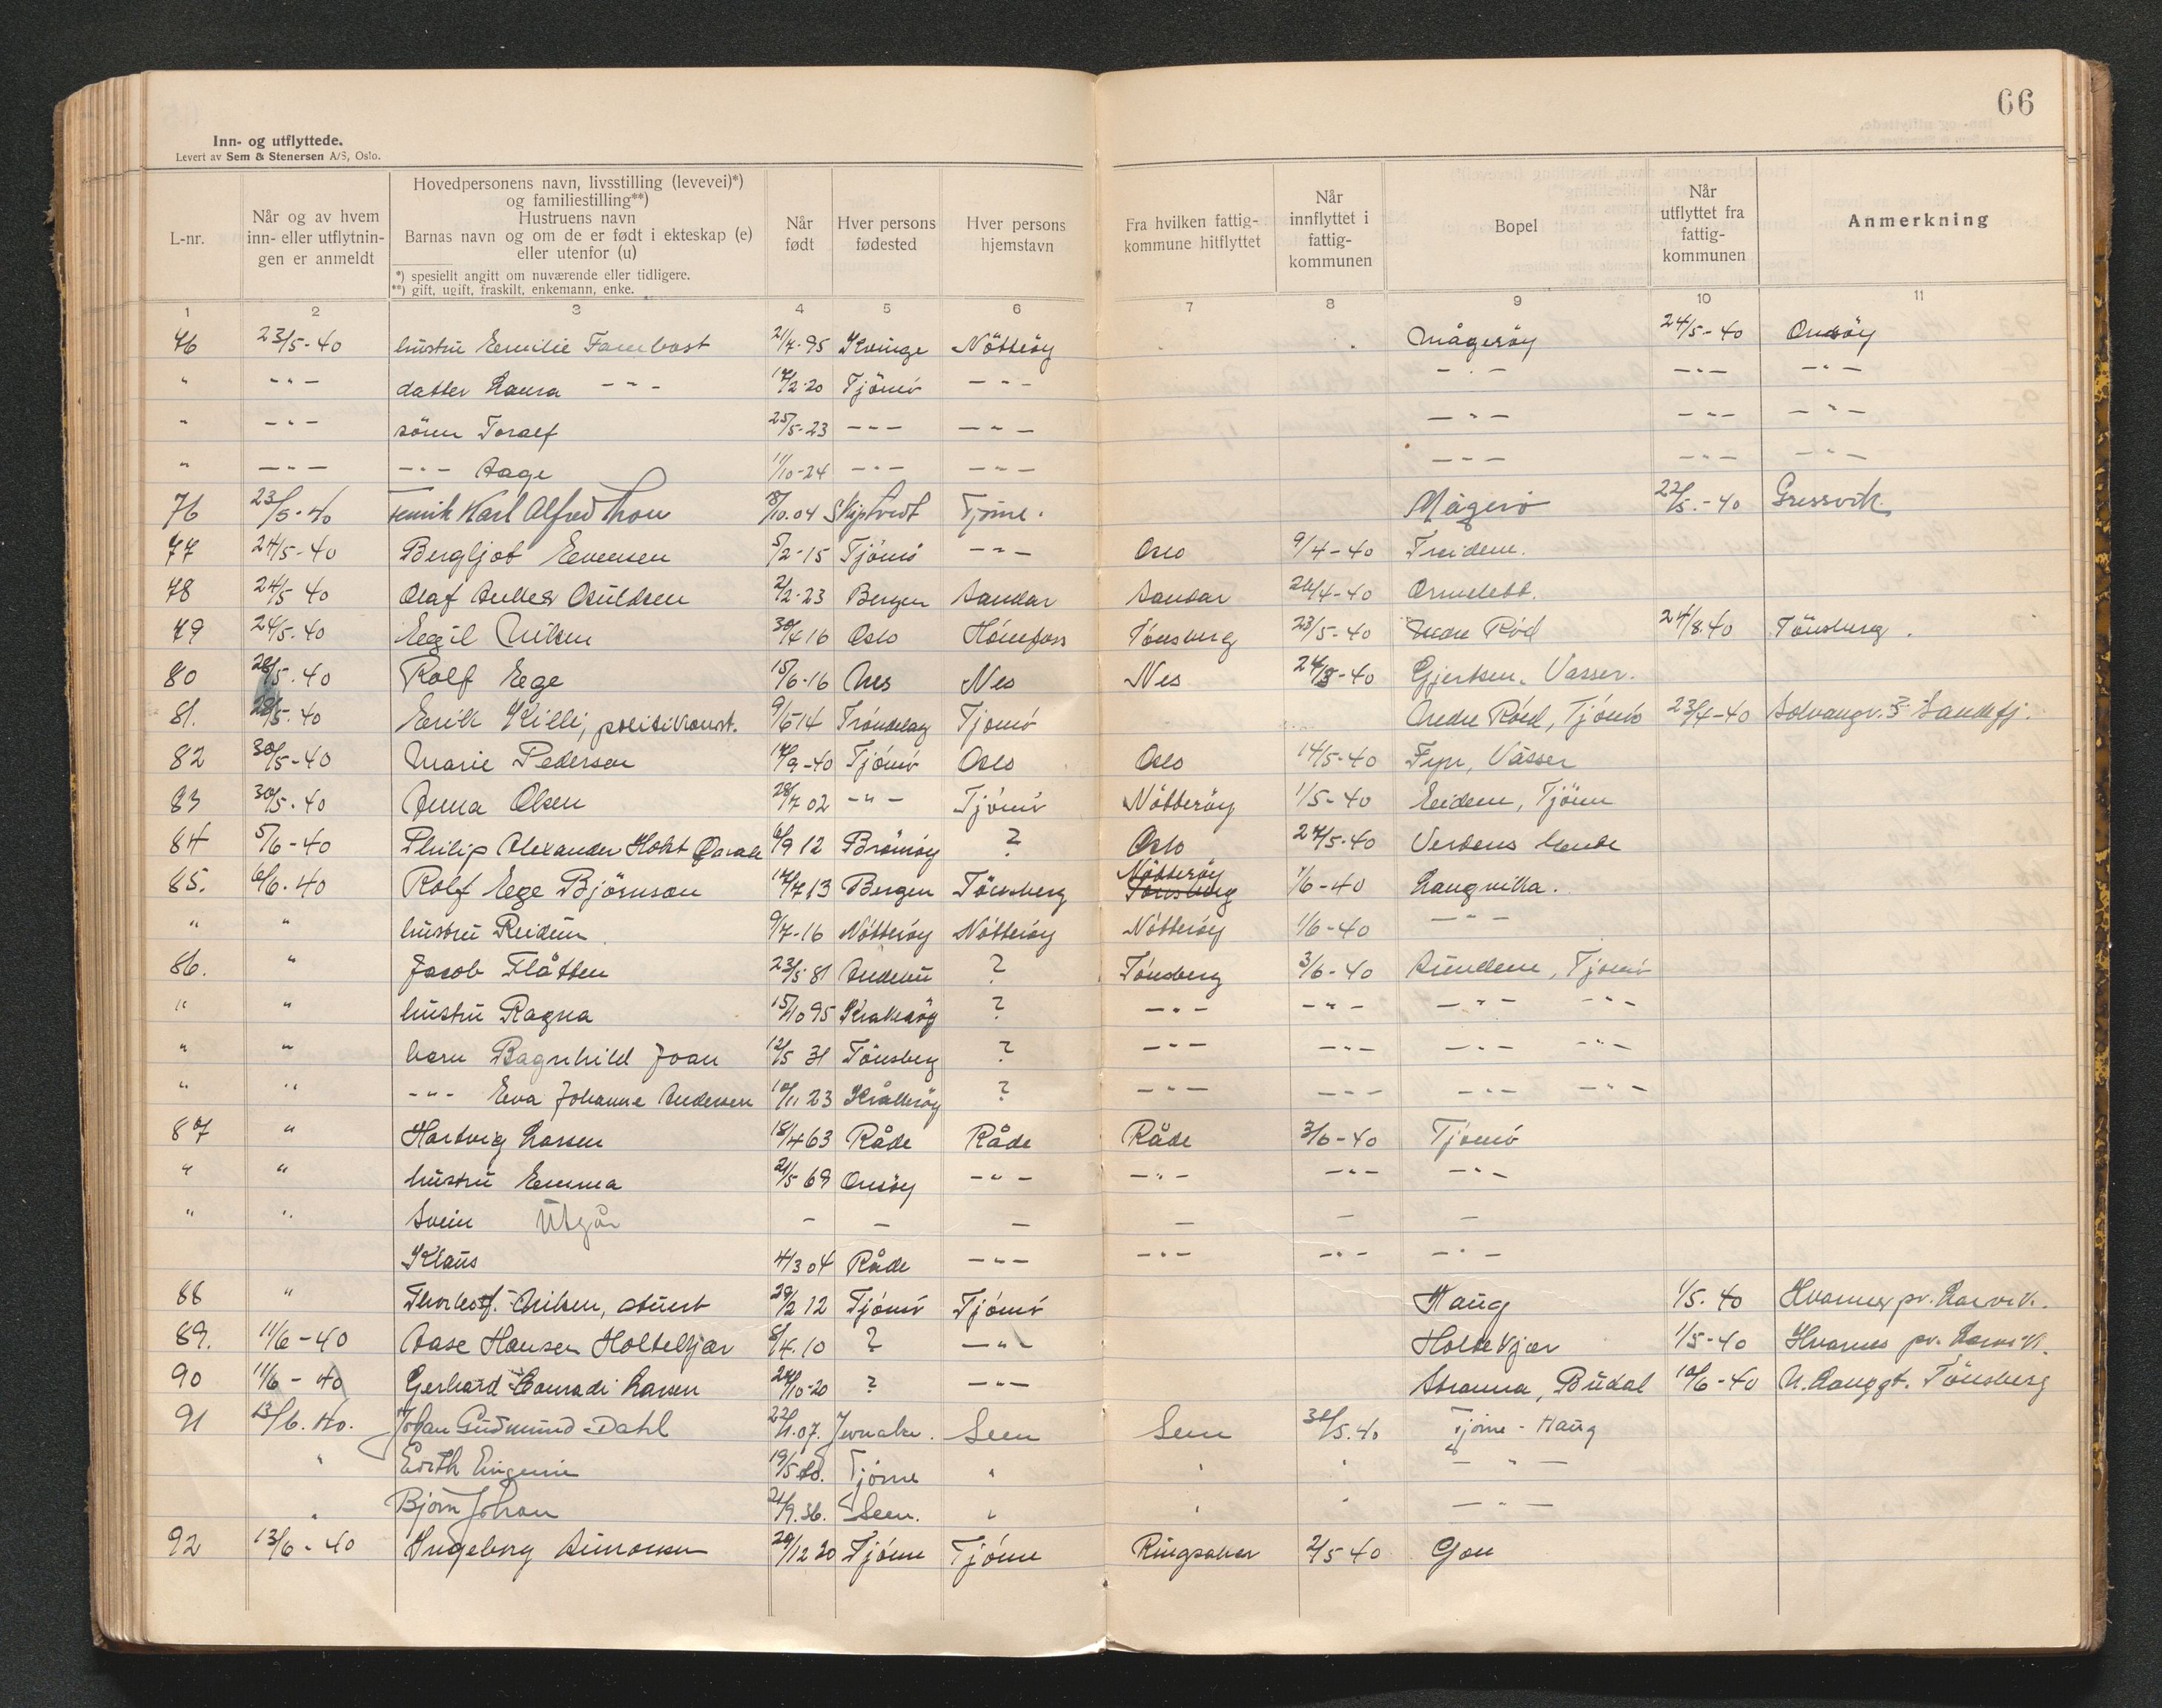 66
Inn- og utflyttede.
Levert av Sem & Stenersen A/S, Oslo.
L-nr.
Når og av hvem
inn- eller utflytnin-
gen er anmeldt
Hovedpersonens navn, livsstilling (levevei)*)
og familiestilling**)
Hustruens navn
Barnas navn og om de er født i ekteskap (e)
eller utenfor (u)
*) spesiellt angitt om nuværende eller tidligere.
**) gift, ugift, fraskilt, enkemann, enke.
Når
født
Hver persons
fødested
Hver persons
hjemstavn
Fra hvilken fattig-
kommune hitflyttet
Når
innflyttet i
fattig-
kommunen
Bopel
Når
utflyttet fra
fattig-
kommunen
Anmerkning
1 2 3 4 5 6 7 8 9 10 11
76 23/5-40 hustru Emilie 21/7-95 Nötteröy Mågeröy 24/5-40 Onsöy
" -"- datter Laura -"- 17/2-20 Tjömö -"- -"- -"- -"-
" -"- sönn Toralf 25/5-23 -"- -"- -"- -"- -"-
" -"- -"- Aage 11/10-24 -"- -"- -"- -"- -"-
76 23/5-40 Karl Alfred Thon 8/10.04 Skiptvedt Tjöme. Mågerö 22/5.-40 Gressvik
77 24/5-40 Bergljot Evensen 5/2-15 Tjömö -"- Oslo 9/4-40
78 24/5-40 Olaf 2/2-23 Bergen Sandar Sandar 26/4-40 Ormelett.
79 24/5-40 Egil Nilsen 30/4 16 Oslo Hönefoss Tönsberg 23/5-40 Nedre Röd 24/8.40 Tönsberg.
80 28/5.40 Rolf Ege 15/6-16 Nes Nes Nes Gjertsen, Vasser.
81. 28/5-40 Erik Killi, politikonst. Tröndelag Tjömö Nedre Röd, Tjömö 23/4-40 Solvangv. 3 Sandefj.
82 30/5-40 Marie Pedersen 14/9-40 Tjömö Oslo Oslo 14/5-40 Fyn, Vasser
83 30/5-40 Anna Olsen 28/7 02 -"- Tjömö Nötteröy 1/5-40 Tjöm
84 5/6-40 Philip Alexander Holst 6/9 12 Brönöy ? Oslo 27/5-40 Verdens Ende
85. 6/6-40 Rolf Ege Björnson 14/7 13 Bergen Tönsberg Nötteröy Tönsberg 1/6-40 Langvika.
" " hustru Reidun 9/7-16 Nötteröy Nötteröy Nötteröy 1/6-40 -"-
86. " Jacob Flåtten 23/5 81 Andebu ? Tönsberg 3/6-40 Sundene, Tjömö
" " hustru Ragna 15/10 95 Kråkeröy ? -"- -"- -"- -"-
" " barn Ragnhild Joan 12/5 31 Tönsberg ? -"- -"- -"- -"-
" " -"- Eva Johanne Andersen 10/11 23 Kråkeröy ? -"- -"- -"- -"-
87 " Hartvig Larsen 18/4 63 Råde Råde Råde 3/6-40 Tjömö
" " hustru Emma 21/5 69 Onsöy -"- -"- -"- -"-
" " Svein Utgår - - - - - -
Klaus 4/3 04 Råde -"- -"- -"- -"-
88 " Nilsen, 29/2 12 Tjömö Tjömö Haug 1/5-40 Hvarnes pr. Larvik.
89. 11/6-40 Aase Hansen Holtekjær 8/4.10 ? -"- Holtekjær 1/5-40 Hvarnes pr. Larvik.
90 11/6-40 Gerhard Conradi Larsen 24/10-20 ? -"- Stranna, Budal 10/6-40 N. Langgt. Tönsberg
91 13/6.40. Johan Gudmund Dahl 22/11.07. Jevnaker. Sem Sem 31/5.40 Tjöme - Haug
" Edith Eugenie 19/5 Tjöme " " " -"-
" Björn Johan 21/9.36. Sem. " " " -"-
92 13/6-40 Ingeborg Simonsen 20/12 20 Tjöme Tjöme Ringsaker 2/5 40 Gon